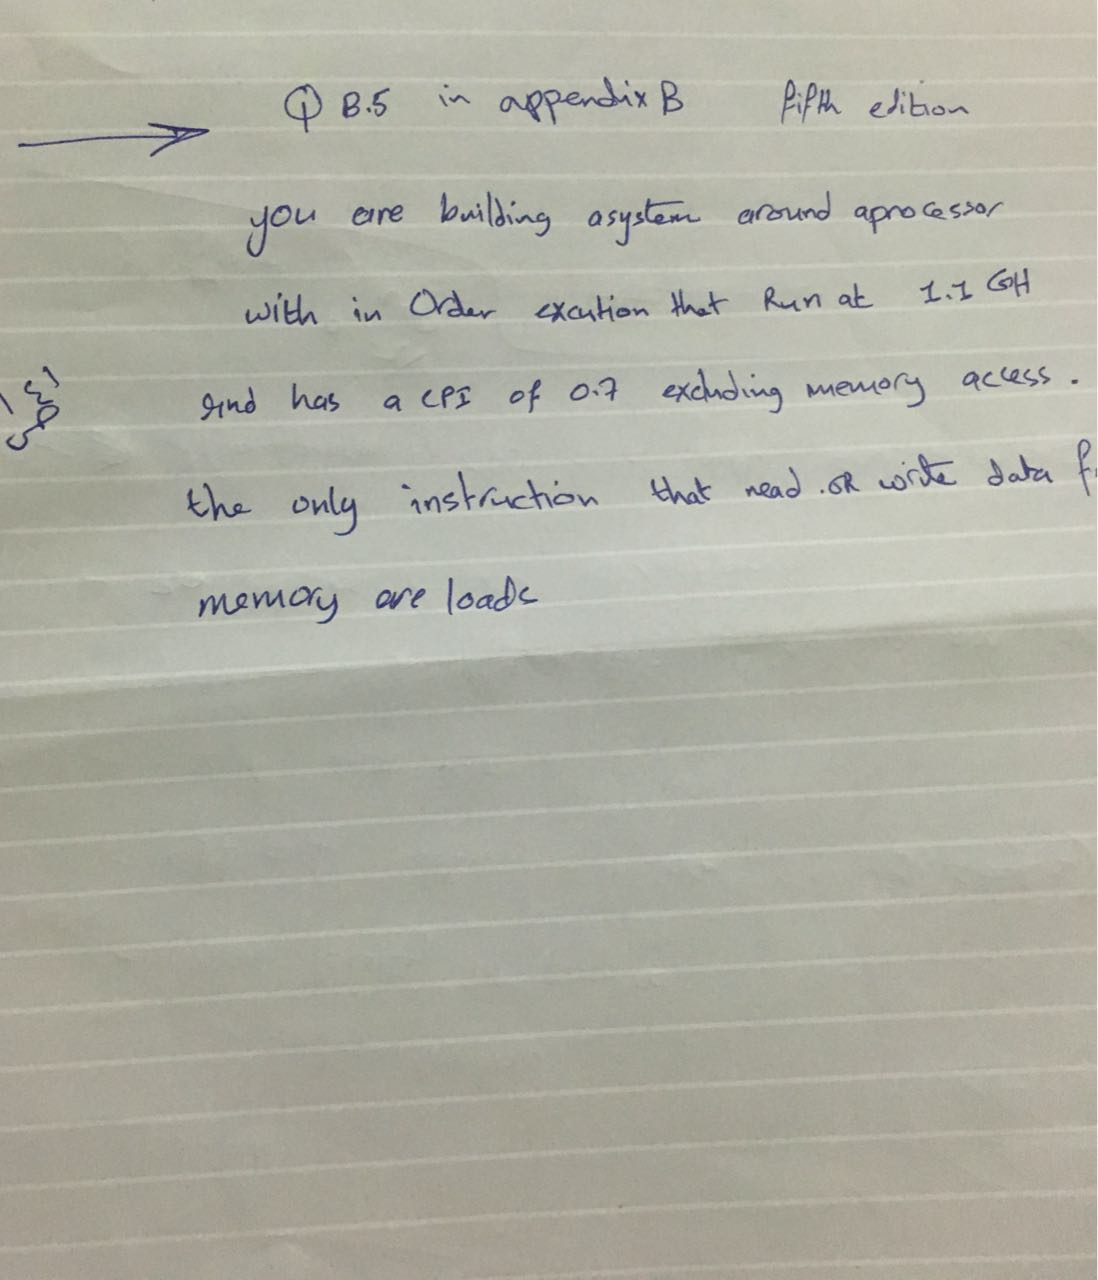 Q B.5 in appendix B fifth edition
you are building asystem around aprocessor
with in Order excution that Run at 1.1 GH
and has a CPI of 0.7 excluding memory access.
the only instruction that read .OR write data
memory are loads